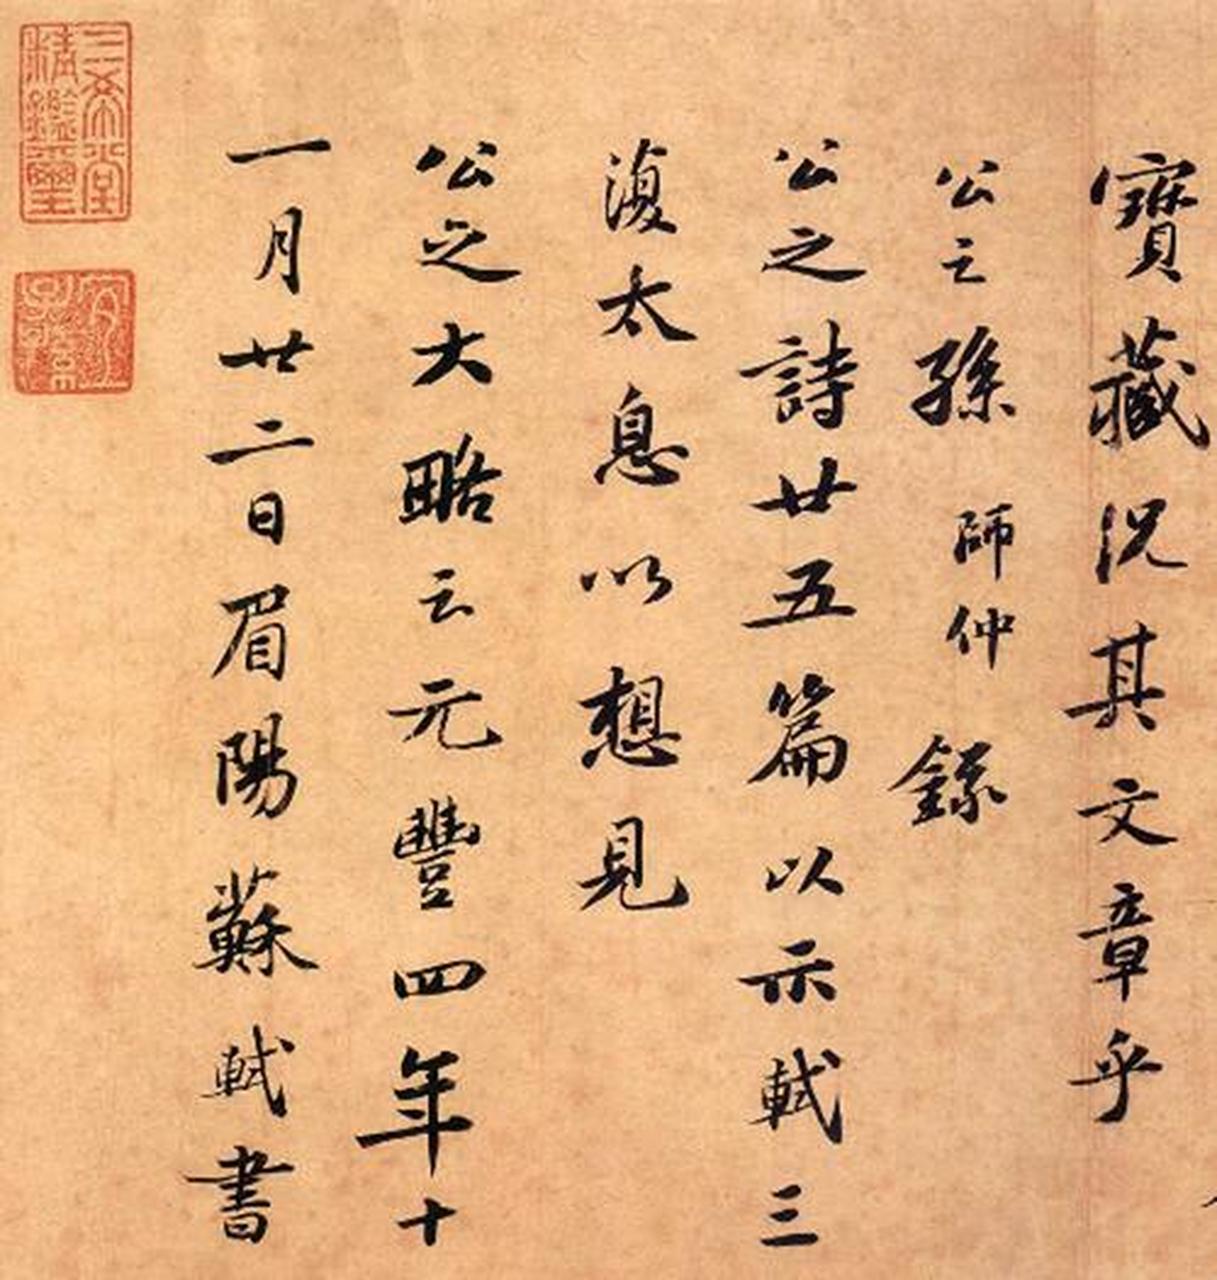 寶藏況其文章乎
公之孫師仲錄
公之詩廿五篇以示軾三
復太息以想見
公之大略云元豐四年十
一月廿二日眉陽蘇軾書
三希堂精鑑璽
宜子孫